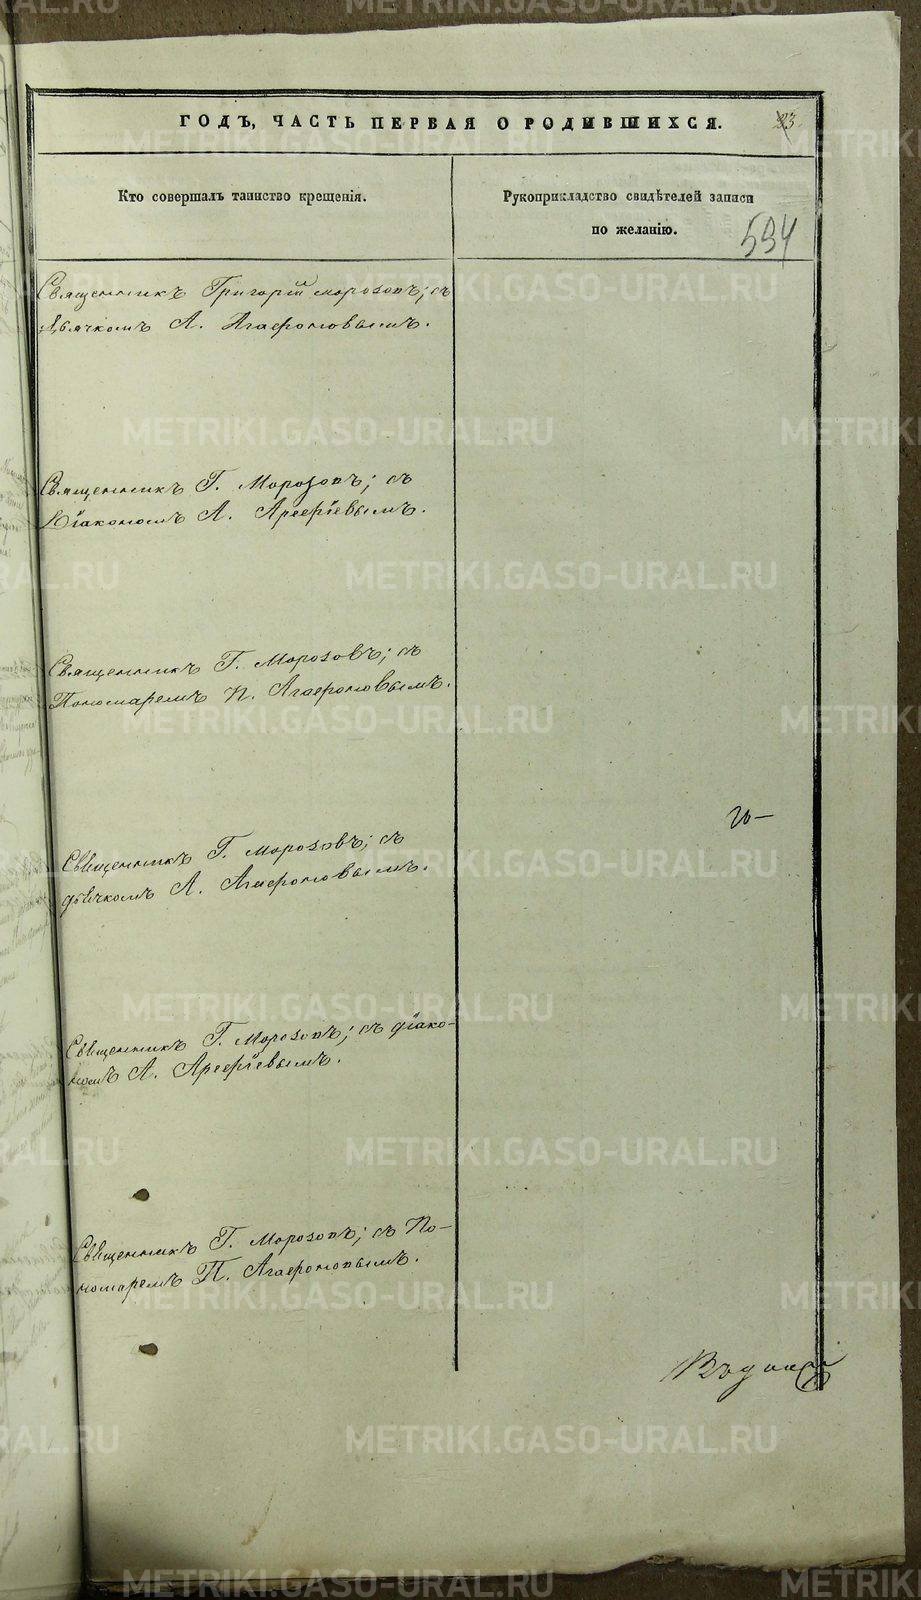 ГОДЪ, ЧАСТЬ ПЕРВАЯ О РОДИВШИХСЯ.
23.
Кто совершалъ таинство крещенія.
Рукоприкладство свидѣтелей записи
по желанію.
594
Священникъ Григорій Морозовъ; съ
дьячкомъ А. Агафоновымъ.
Священникъ Г. Морозовъ; съ
Діакономъ А. Арефьевымъ.
Священникъ Г. Морозовъ; съ
Пономаремъ П. Агафоновымъ.
Священникъ Г. Морозовъ; съ
дьячкомъ А. Агафоновымъ.
Священникъ Г. Морозовъ; съ діако-
номъ А. Арефьевымъ.
Священникъ Г. Морозовъ; съ По-
номаремъ П. Агафоновымъ.
METRIKI.GASO-URAL.RU